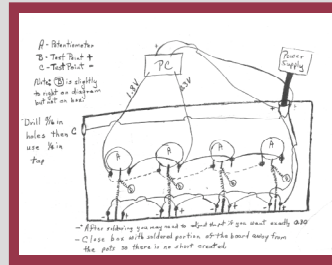 A - Potentiometer
B - Test Point +
C - Test Point -
Note: (B) is slightly
to right on diagram
but not on box.
Drill 9/16 in
holes then
use 1/16 in
tap
C
PC
Power
Supply
1.8V
3.3V
+
-
A
A
A
A
B
B
B
B
- After soldering you may need to adjust the pot if you want exactly
- Close box with soldered portion of the board away from
the pots so there is no short created.